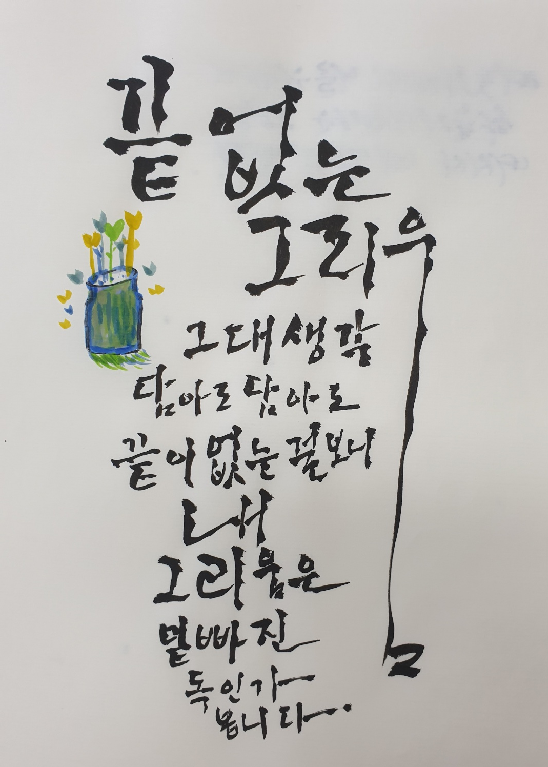 끝 없는
그리움
그대 생각
담아도 담아도
끝이 없는 걸 보니
내
그리움은
밑빠진
독인가
봅니다.